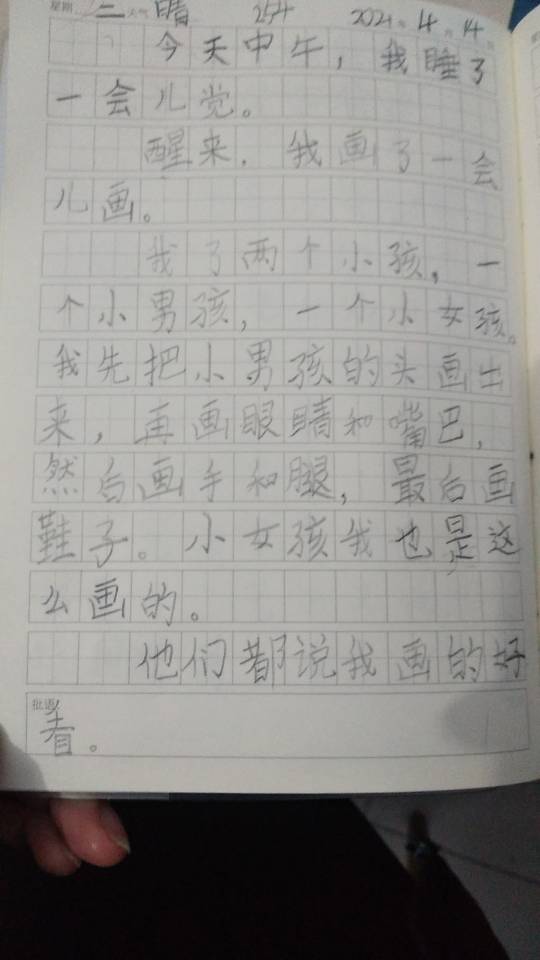 星期 三 天气 晴 254 2021年 4月 14日
今天中午，我睡了
一会儿觉。
醒来，我画了一会
儿画。
我了两个小孩，一
个小男孩，一个小女孩。
我先把小男孩的头画出
来，再画眼睛和嘴巴，
然后画手和腿，最后画
鞋子。小女孩我也是这
么画的。
他们都说我画的好
批语
看。